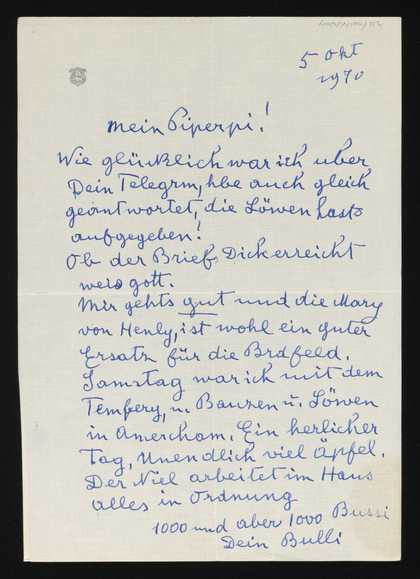 5 Okt
1970
mein Piperpi!
Wie glücklich war ich uber
Dein Telegrm, hbe auch gleich
geantwortet, die Löwen hasts
aufgegeben!
Ob der Brief Dich erreicht
weis gott.
Mir gehts gut und die Mary
von Henly, ist wohl ein guter
Ersatz für die Brdfeld.
Samstag war ich mit dem
Tembery, u. Bauzen u. Löwen
in Amercham. Ein herlicher
Tag, Unendlich viel äpfel.
Der Niel arbeitet im Haus
alles in Ordnung
1000 und aber 1000 Bussi
Dein Bulli